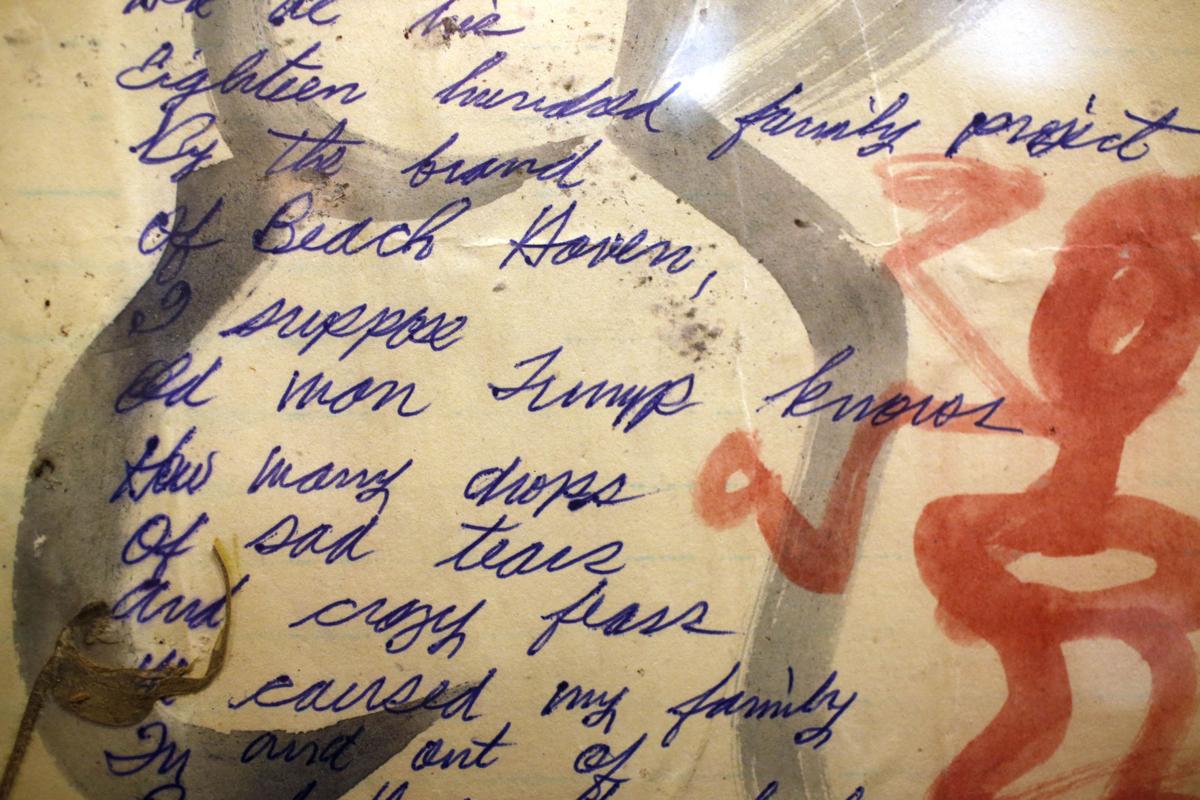 his
Eighteen hundred family project
By the brand
Of Beach Haven,
I suppose
Old man Trump knows
How many drops
Of sad tears
And crazy fears
caused my family
In and out of